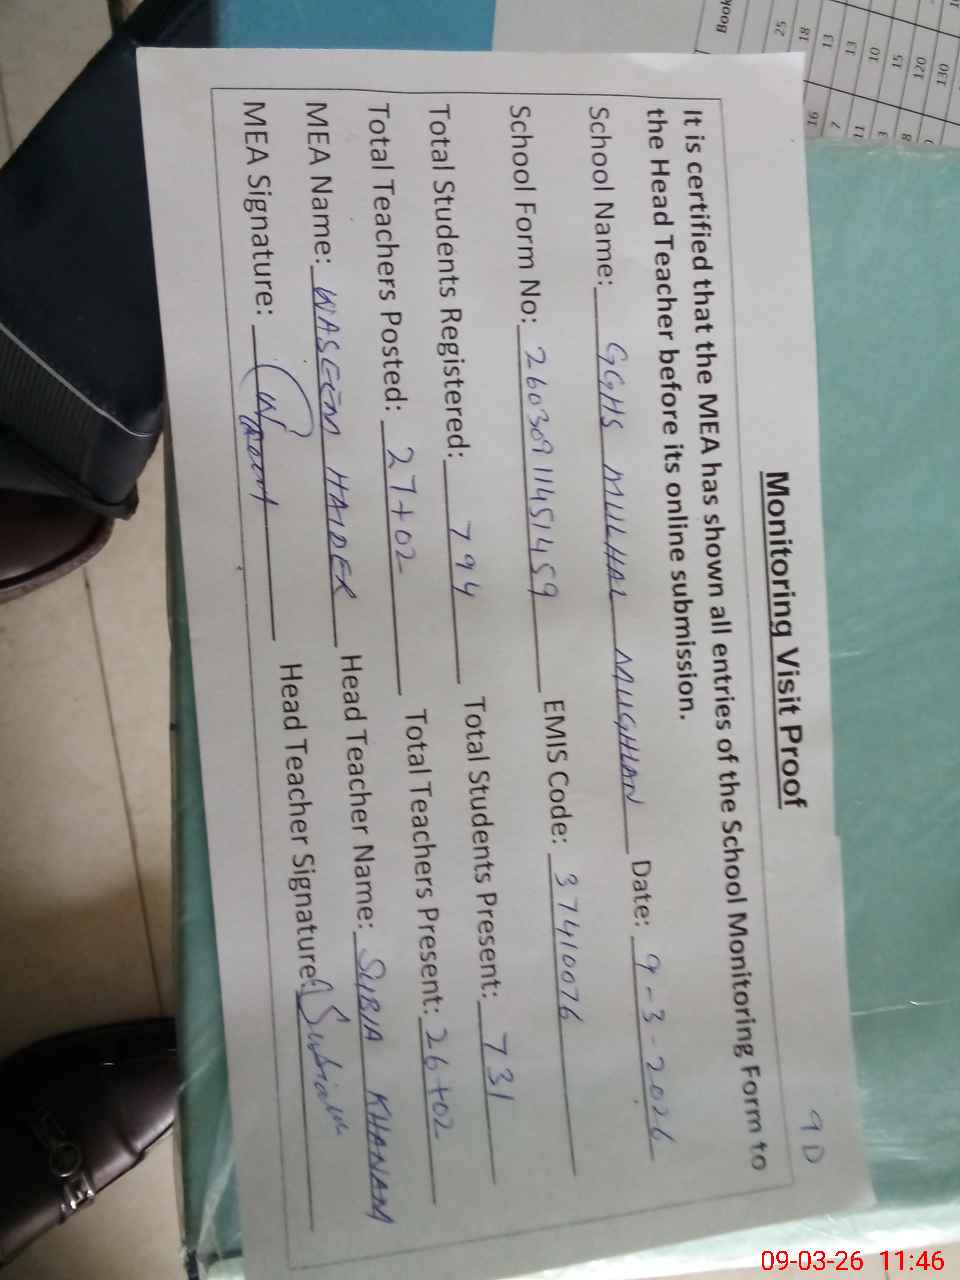 9D
Monitoring Visit Proof
It is certified that the MEA has shown all entries of the School Monitoring Form to
the Head Teacher before its online submission.
School Name: GGHS MULHAL MUGHLAN Date: 9-3-2026
School Form No: 26030911451459 EMIS Code: 37410076
Total Students Registered: 794 Total Students Present: 731
Total Teachers Posted: 27+02 Total Teachers Present: 26+02
MEA Name: WASEEM HAIDER Head Teacher Name: SUBIA KHANAM
MEA Signature: Head Teacher Signature:
Book
25
18
13
13
10
15
120
130
16
7
11
3
8
09-03-26 11:46